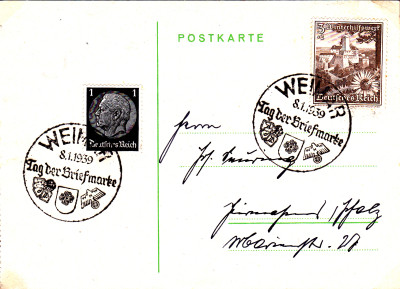 POSTKARTE
1 1
Deutsches Reich
WEIMAR
8.1.1939
Tag der Briefmarke
3 Winterhilfswerk
Deutsches Reich
WEIMAR
8.1.1939
Tag der Briefmarke
Herrn
Pirmasens / Pfalz